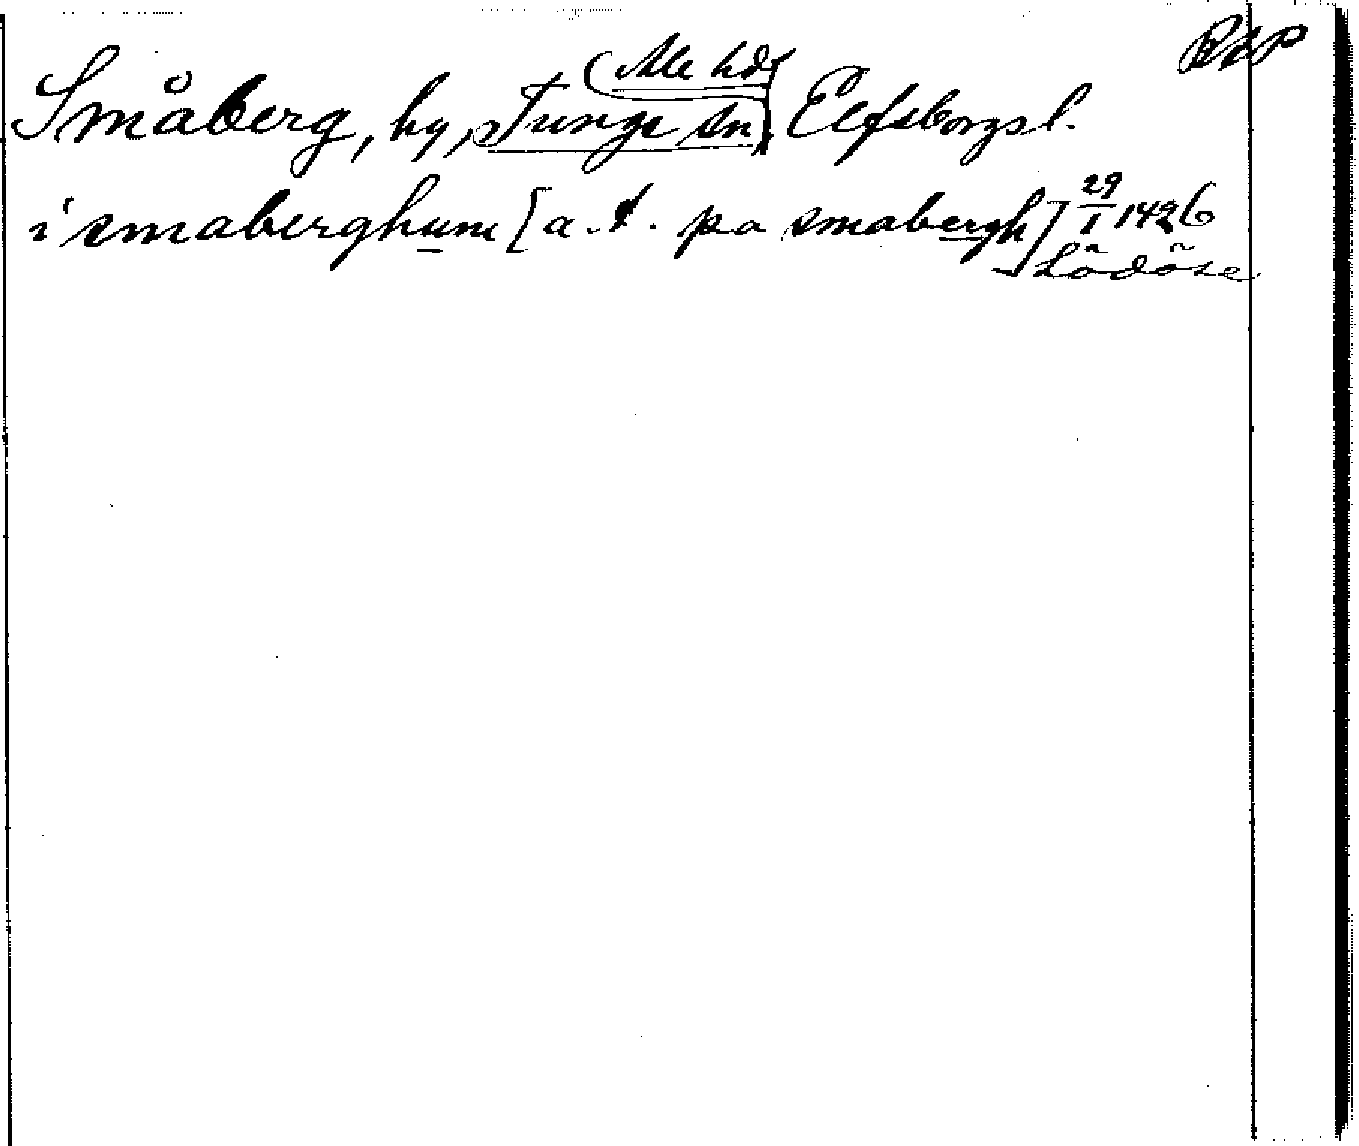 RAP
(Ale hd)
Småberg, by, Tunge sn, Elfsborgs l.
i smaberghum [a. t. pa smabergh] 29/1 1426
Lödöse